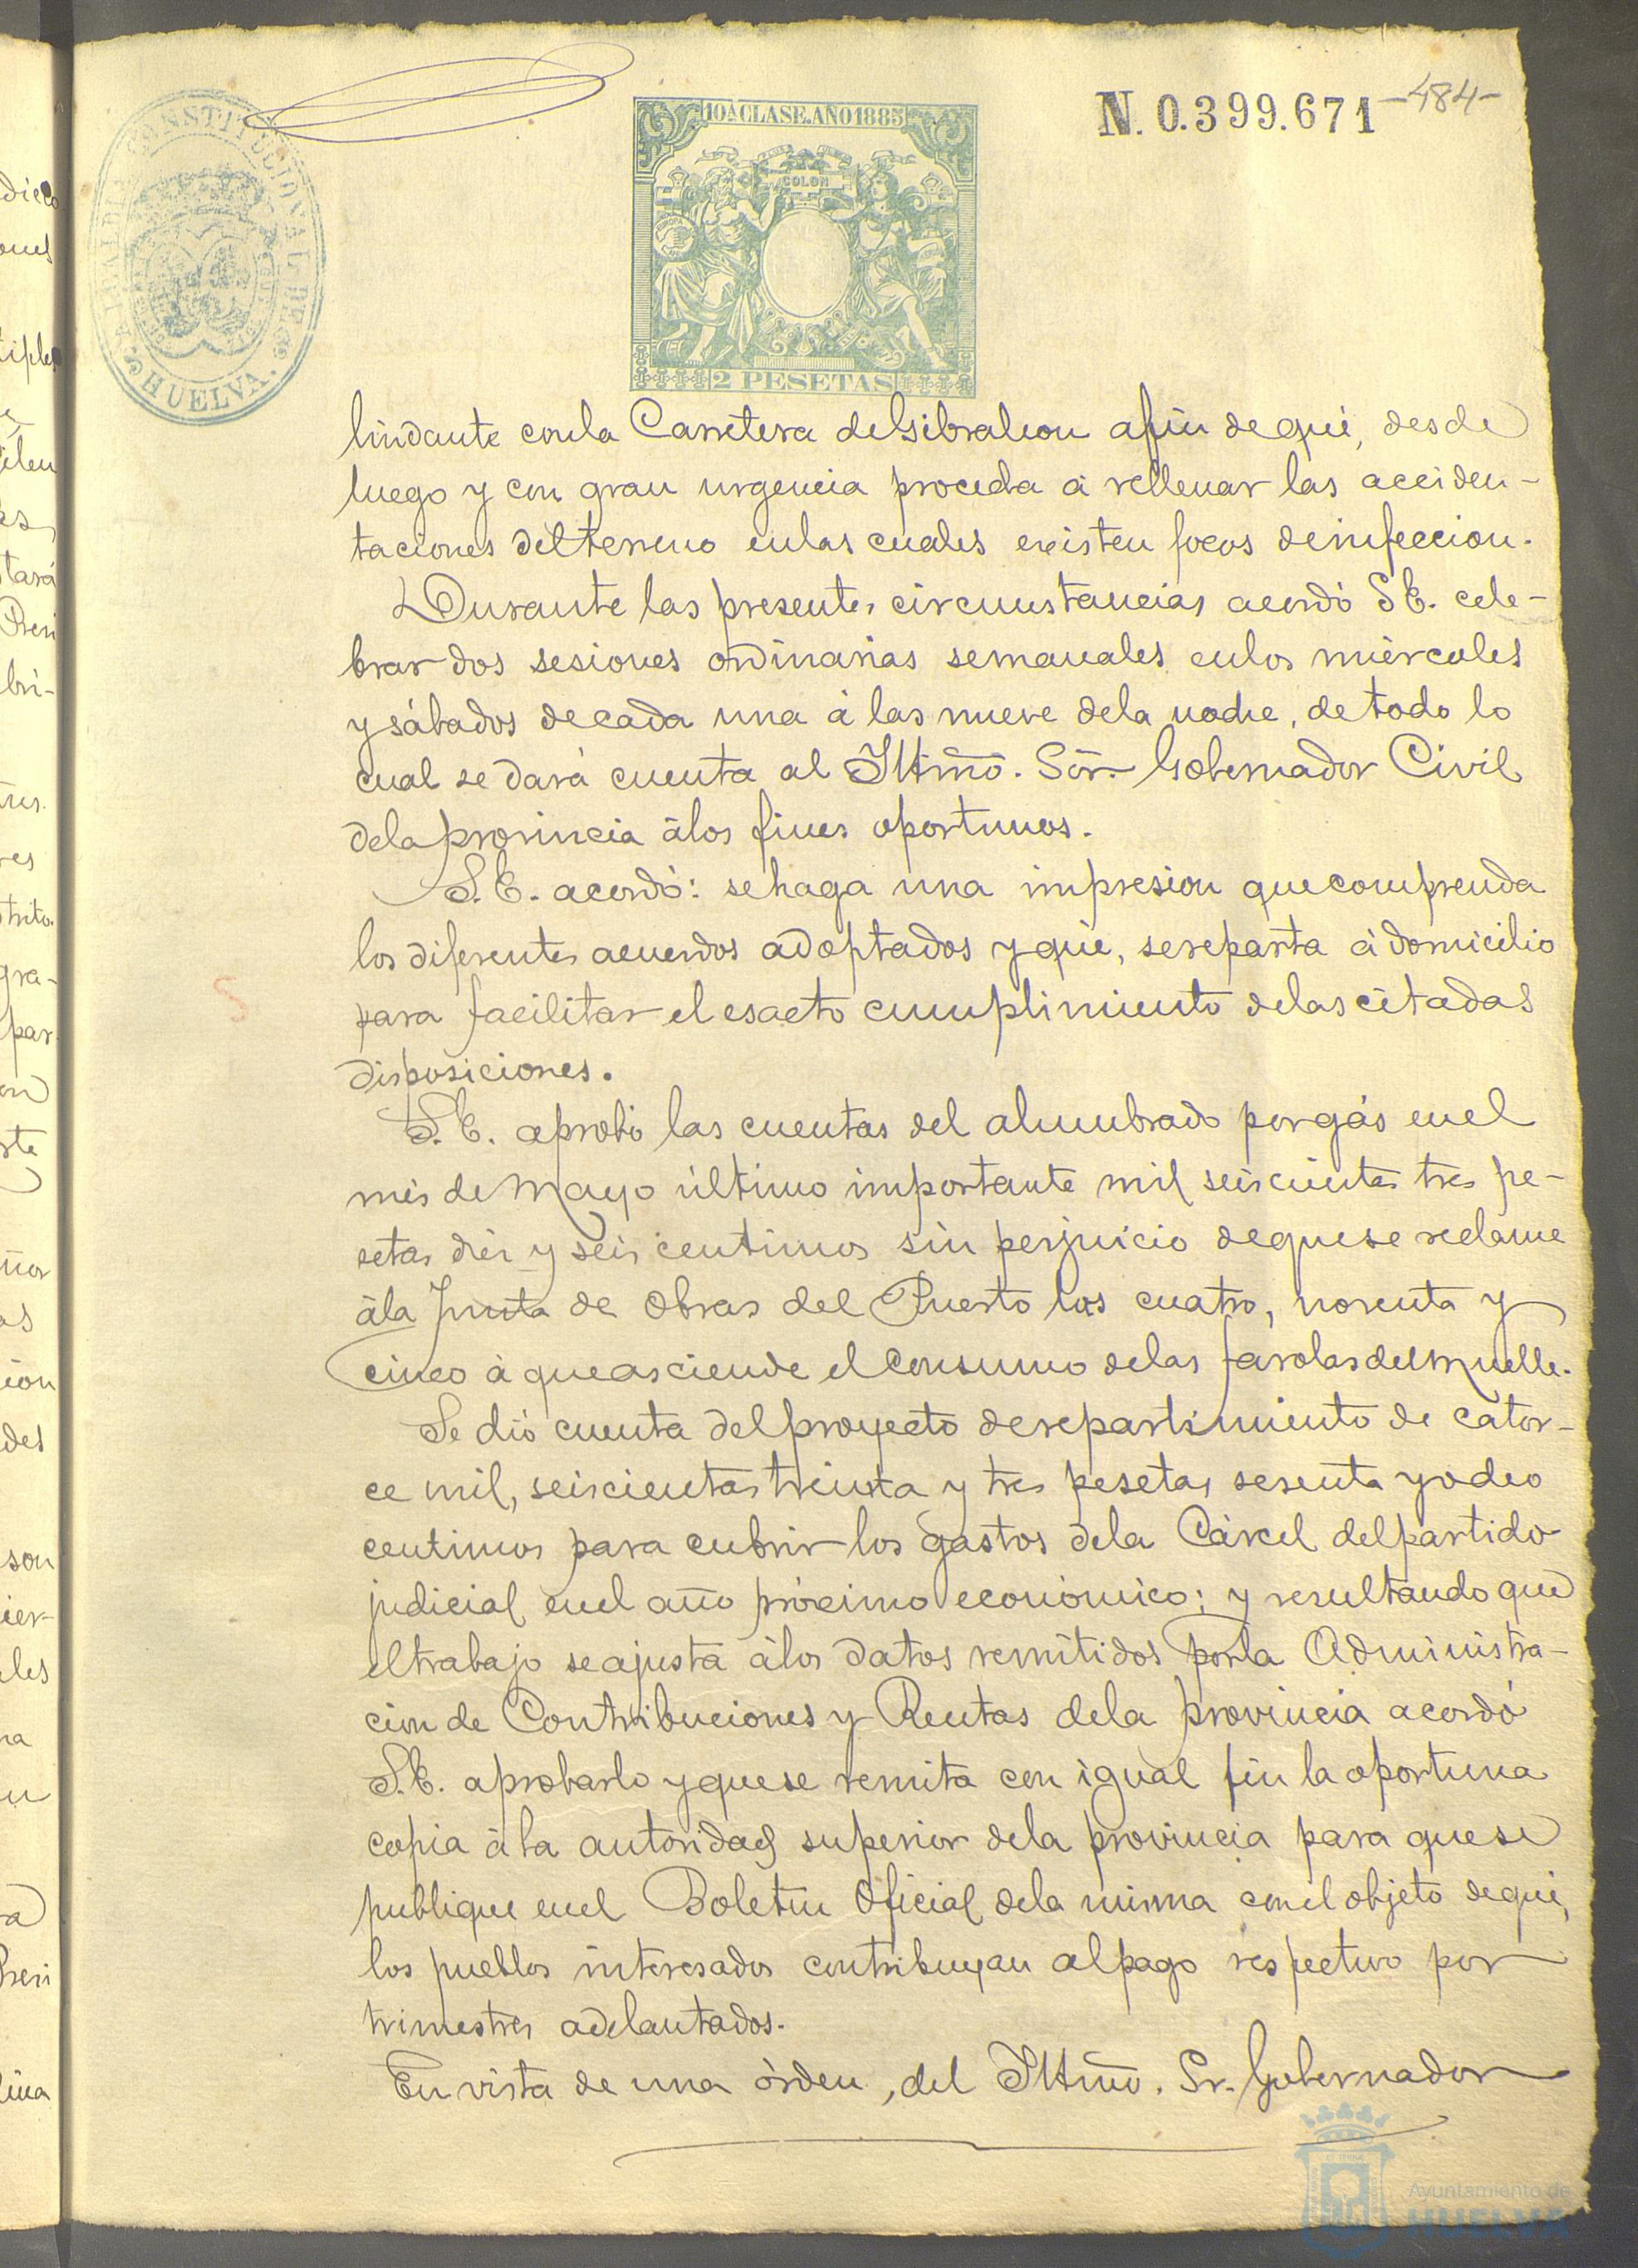 N. 0.399.671 -484-
10A CLASE. AÑO 1885
COLON
2 PESETAS
ALCALDIA CONSTITUCIONAL DE HUELVA.
lindante con la Carretera de Gibraleon afin de que, desde
luego y con gran urgencia proceda á rellenar las acciden-
taciones del terreno en las cuales existen focos de infeccion.
Durante las presentes circunstancias acordó S E. cele-
brar dos sesiones ordinarias semanales en los miércoles
y sábados de cada una á las nueve de la noche, de todo lo
cual se dará cuenta al Iltmõ. Sõr. Gobernador Civil
de la provincia á los fines oportunos.
S. E. acordó: se haga una impresion que comprenda
los diferentes acuerdos adoptados y que, se reparta á domicilio
para facilitar el esacto cumplimiento de las citadas
disposiciones.
S. E. aprobó las cuentas del alumbrado por gás en el
mes de Mayo último importante mil seiscientas tres pe-
setas diez y seis centimos sin perjuicio de que se reclame
á la Junta de Obras del Puerto las cuatro, noventa y
cinco á que asciende el consumo de las farolas del Muelle.
Se dió cuenta del proyecto de repartimiento de cator-
ce mil, seiscientas treinta y tres pesetas sesenta y ocho
centimos para cubrir los gastos de la Cárcel del partido
judicial en el año próximo económico; y resultando que
el trabajo se ajusta á los datos remitidos por la Administra-
cion de Contribuciones y Rentas de la provincia acordó
S. E. aprobarlo y que se remita con igual fin la oportuna
copia á la autoridad superior de la provincia para que se
publique en el Boletin Oficial de la misma con el objeto de que,
los pueblos interesados contribuyan al pago respectivo por
trimestres adelantados.
En vista de una órden, del Iltmõ. Sr. Gobernador
Ayuntamiento de
HUELVA